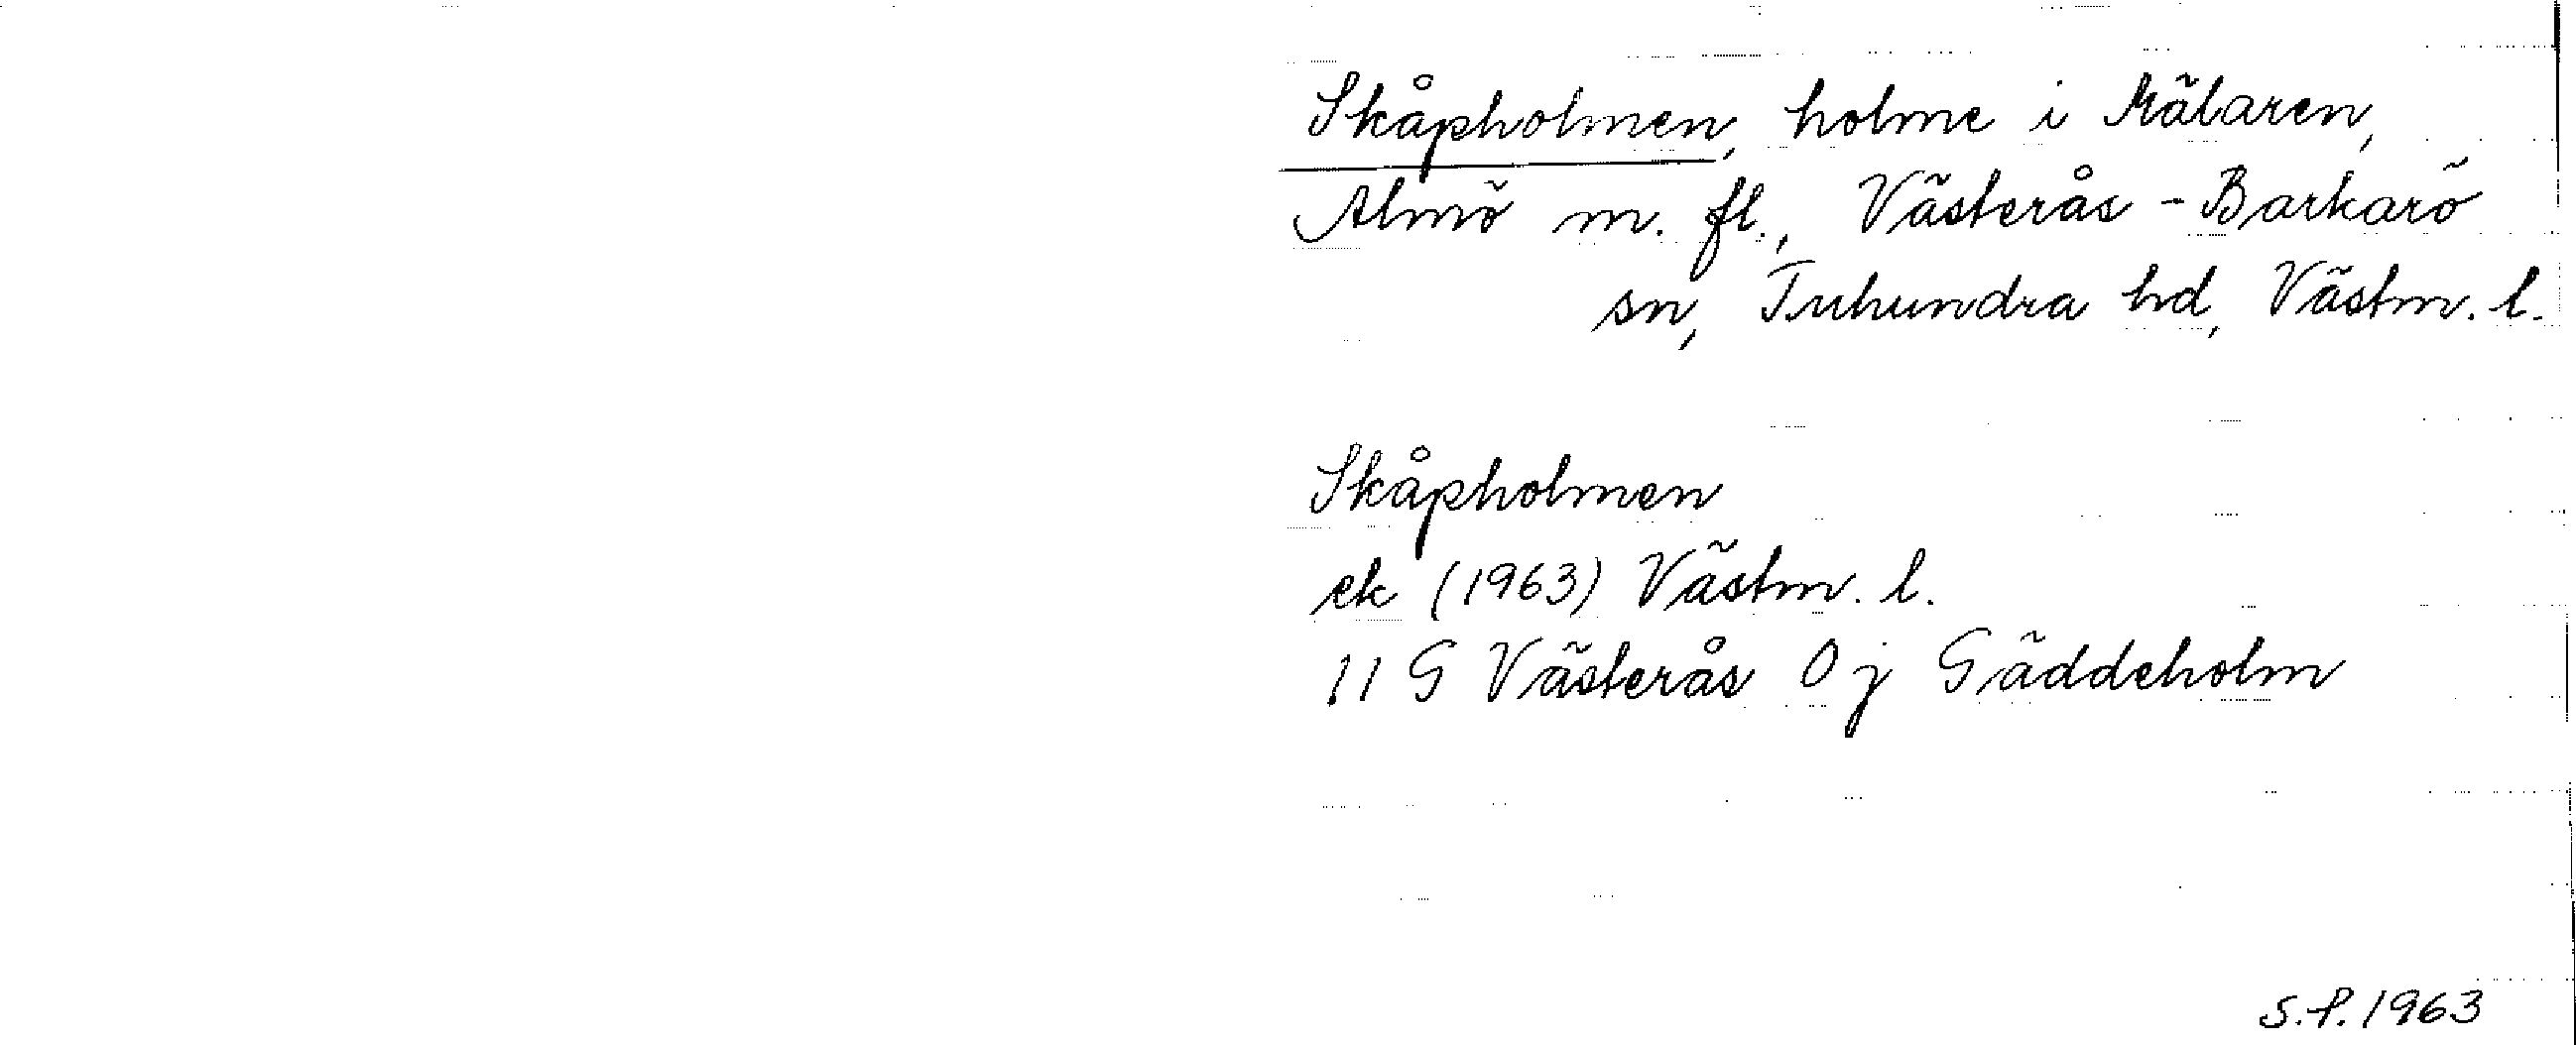 Skåpholmen, holme i Mälaren,
Almö m. fl., Västerås-Barkarö
sn, Tuhundra hd, Västm. l.
Skåpholmen
ek (1963) Västm. l.
11 G Västerås 0 j Gäddeholm
S.P. 1963